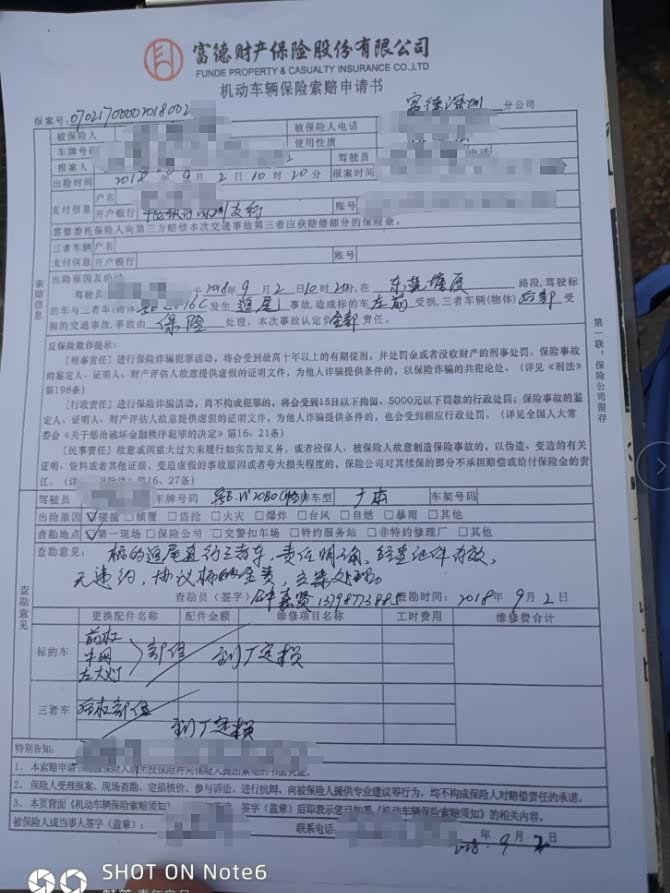 富德财产保险股份有限公司
FUNDE PROPERTY & CASUALTY INSURANCE CO.,LTD
机动车辆保险索赔申请书
报案号: 07021700002018002 富德深圳 分公司
被保险人 被保险人电话
车牌号码 使用性质
报案人 驾驶员 电话
出险时间 2018年9月2日10时20分 报案时间
支付信息 户名
开户银行 深圳支行 账号
需要委托保险人向第三方赔偿本次交通事故第三者应获赔偿部分的保险金。
三者车辆 户名
支付信息 开户银行 账号
索赔信息
出险原因及经过
驾驶员 于2018年9月2日10时20分,在 东莞塘厦 路段,驾驶标
的车与三者 发生 追尾 事故,造成标的车 左前 受损,三者车辆(物体) 后部 受
损的交通事故,事故由 保险 处理。本次事故认定负 全部 责任。
反保险欺诈提示:
【刑事责任】进行保险诈骗犯罪活动,将会受到最高十年以上的有期徒刑,并处罚金或者没收财产的刑事处罚。保险事故
的鉴定人、证明人、财产评估人故意提供虚假的证明文件,为他人诈骗提供条件的,以保险诈骗的共犯论处。(详见《刑法》
第198条)
【行政责任】进行保险诈骗活动,尚不构成犯罪的,将会受到15日以下拘留、5000元以下罚款的行政处罚;保险事故的鉴
定人、证明人、财产评估人故意提供虚假的证明文件,为他人诈骗提供条件的,也会受到相应行政处罚。(详见全国人大常
委会《关于惩治破坏金融秩序犯罪的决定》第16、21条)
【民事责任】故意或因重大过失未履行如实告知义务,或者投保人、被保险人故意制造保险事故的,以伪造、变造的有关
证明、资料或者其他证据,变造虚假的事故原因或者夸大损失程度的,保险公司对其续保的部分不承担赔偿或给付保险金的责
任。 第16、27条)
第一联:保险公司留存
驾驶员 车牌号码 车型 广本 车架号码
出险原因 ☑碰撞 □倾覆 □盗抢 □火灾 □爆炸 □台风 □自燃 □暴雨 □其他
查勘地点 ☑第一现场 □保险公司 □交警扣车场 □特约服务站 □非特约修理厂 □其他
查勘意见
查勘意见: 标的追尾直行三者车,责任明确,经查证件有效,
无违约,协议标的全责,立案处理。
查勘员(签字) 13798773885 查勘时间: 2018年9月2日
更换配件名称 配件金额 维修项目名称 工时费用 维修费合计
标的车 前杠
中网
左大灯 部位 到厂定损
三者车 后杠部位 到厂定损
特别告知:
1、本索赔申请
2、保险人受理报案、现场查勘、定损核价、参与诉讼、进行抗辩、向被保险人提供专业建议等行为,均不构成保险人对赔偿责任的承诺。
3、本页背面《机动车辆保险索赔须知》 签字(盖章)后即表示您已知悉《机动车辆保险索赔须知》的相关内容。
被保险人或当事人签字(盖章): 联系电话: 2018年9月2日
SHOT ON Note6